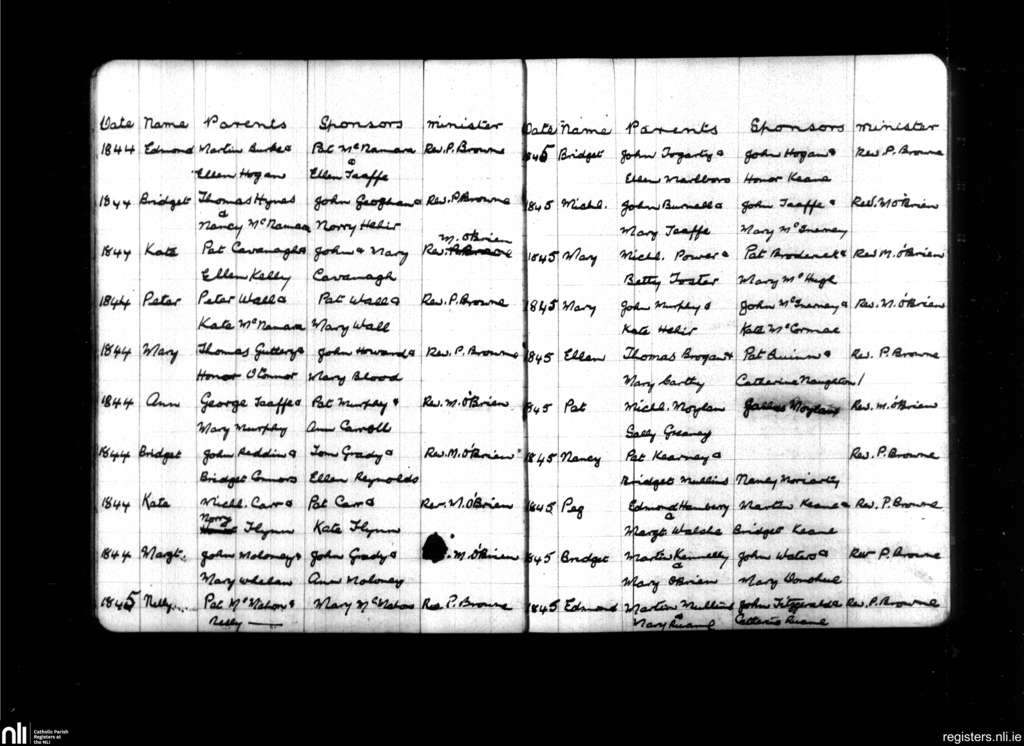 Date Name Parents Sponsors minister
1844 Edmond Martin Burke & Pat McNamara Rev. P. Browne
Ellen Hogan & Ellen Taaffe
1844 Bridget Thomas Hynes John Geoghan & Rev. P. Browne
& Nancy McNamara Norry Hehir
M. O'Brien
1844 Kate Pat Cavanagh & John & Mary Rev. P. Browne
Ellen Kelly Cavanagh
1844 Peter Peter Wall & Pat Wall & Rev. P. Browne
Kate McNamara Mary Wall
1844 Mary Thomas Guttery & John Howard & Rev. P. Browne
Honor O'Connor Mary Blood
1844 Ann George Taaffe & Pat Murphy & Rev. M. O'Brien
Mary Murphy Ann Carroll
1844 Bridget John Reddin & Tom Grady & Rev. M. O'Brien
Bridget Connors Ellen Reynolds
1844 Kate Michl. Carr & Pat Carr & Rev. M. O'Brien
Norry
Honor Flynn Kate Flynn
1844 Margt. John Moloney & John Grady & M. O'Brien
Mary Whelan Ann Moloney
1845 Nelly Pat McMahon & Mary McMahon Rev. P. Browne
Nelly —
Date Name Parents Sponsors minister
1845 Bridget John Fogarty & John Hogan & Rev. P. Browne
Ellen Marlboro Honor Keane
1845 Michl. John Burnell & John Taaffe & Rev. M O'Brien
Mary Taaffe Mary McInerney
1845 Mary Michl. Power & Pat Broderick & Rev M. O'Brien
Betty Foster Mary McHugh
1845 Mary John Murphy & John McInerney & Rev. M. O'Brien
Kate Hehir Kate McCormac
1845 Ellen Thomas Brogan & Pat Quinn & Rev. P. Browne
Mary Carthy Catherine Naughton /
1845 Pat Michl. Moylan Moylan Rev. M. O'Brien
Sally Greaney
1845 Nancy Pat Kearney & Rev. P. Browne
Bridget Mullins Nancy Moriarty
1845 Peg Edmond Hanberry Martin Keane & Rev. P. Browne
& Margt Walshe Bridget Keane
1845 Bridget Martin Kennelly John Waters & Rev P. Browne
& Mary O'Brien Mary Donohue
1845 Edmond Martin Mullins John Fitzgerald & Rev. P. Browne
& Mary Ruane Catherine Ruane
nli Catholic Parish
Registers at
the NLI
registers.nli.ie